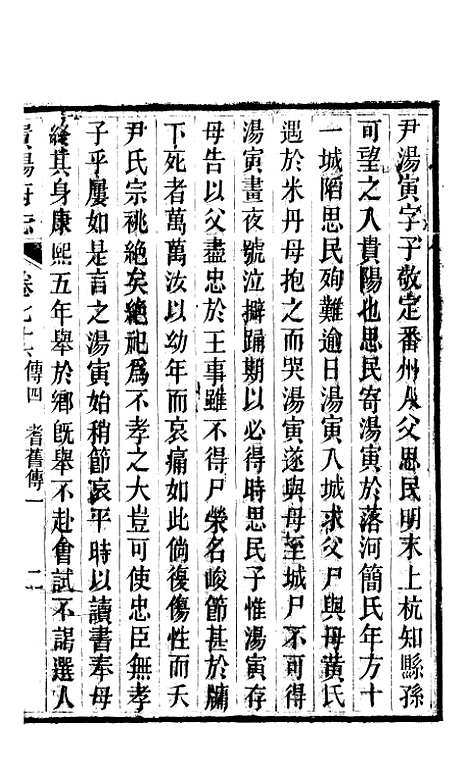 尹湯寅字子敬定番州人父思民明末上杭知縣孫
可望之入貴陽也思民寄湯寅於落河簡氏年方十
一城陷思民殉難逾日湯寅入城求父尸與母黃氏
遇於米丹母抱之而哭湯寅遂與母至城尸不可得
湯寅晝夜號泣擗踊期以必得時思民子惟湯寅存
母告以父盡忠於王事雖不得尸榮名峻節甚於牖
下死者萬萬汝以幼年而哀痛如此倘復傷性而夭
尹氏宗祧絕矣絕祀爲不孝之大豈可使忠臣無孝
子乎屢如是言之湯寅始稍節哀平時以讀書奉母
終其身康熙五年舉於鄉旣舉不赴會試不謁選人
貴陽府志 卷七十六 傳四 耆舊傳一 二